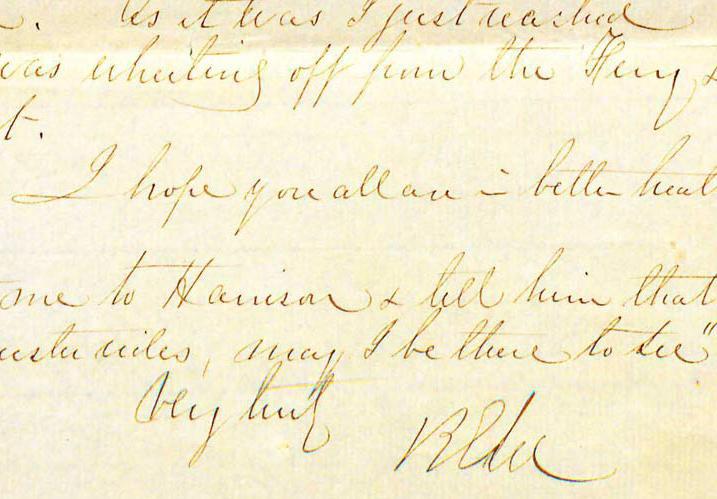 . As it was I just reached
was wheeling off from the Ferry &
t.
I hope you all are in better heal
me to Harrison & tell him that
rides, may I be there to see"
Very truly
R E Lee